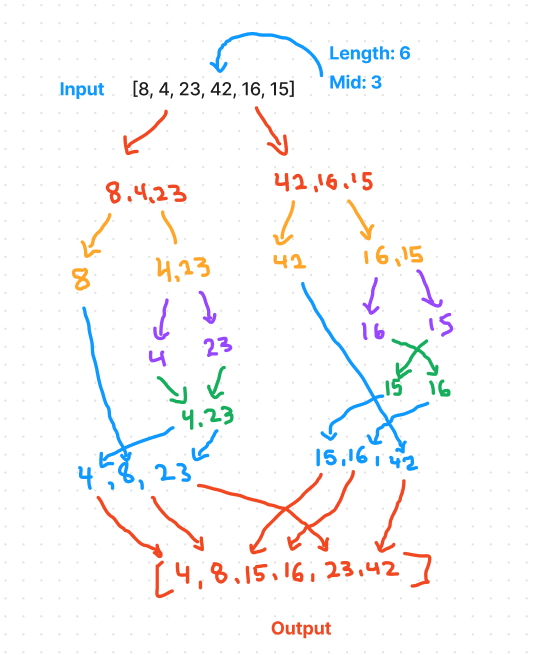 Length: 6
Mid: 3
Input [8, 4, 23, 42, 16, 15]
8,4,23 42,16,15
8 4,23 42 16,15
4 23 16 15
4,23 15 16
4,8,23 15,16,42
[4,8,15,16,23,42]
Output